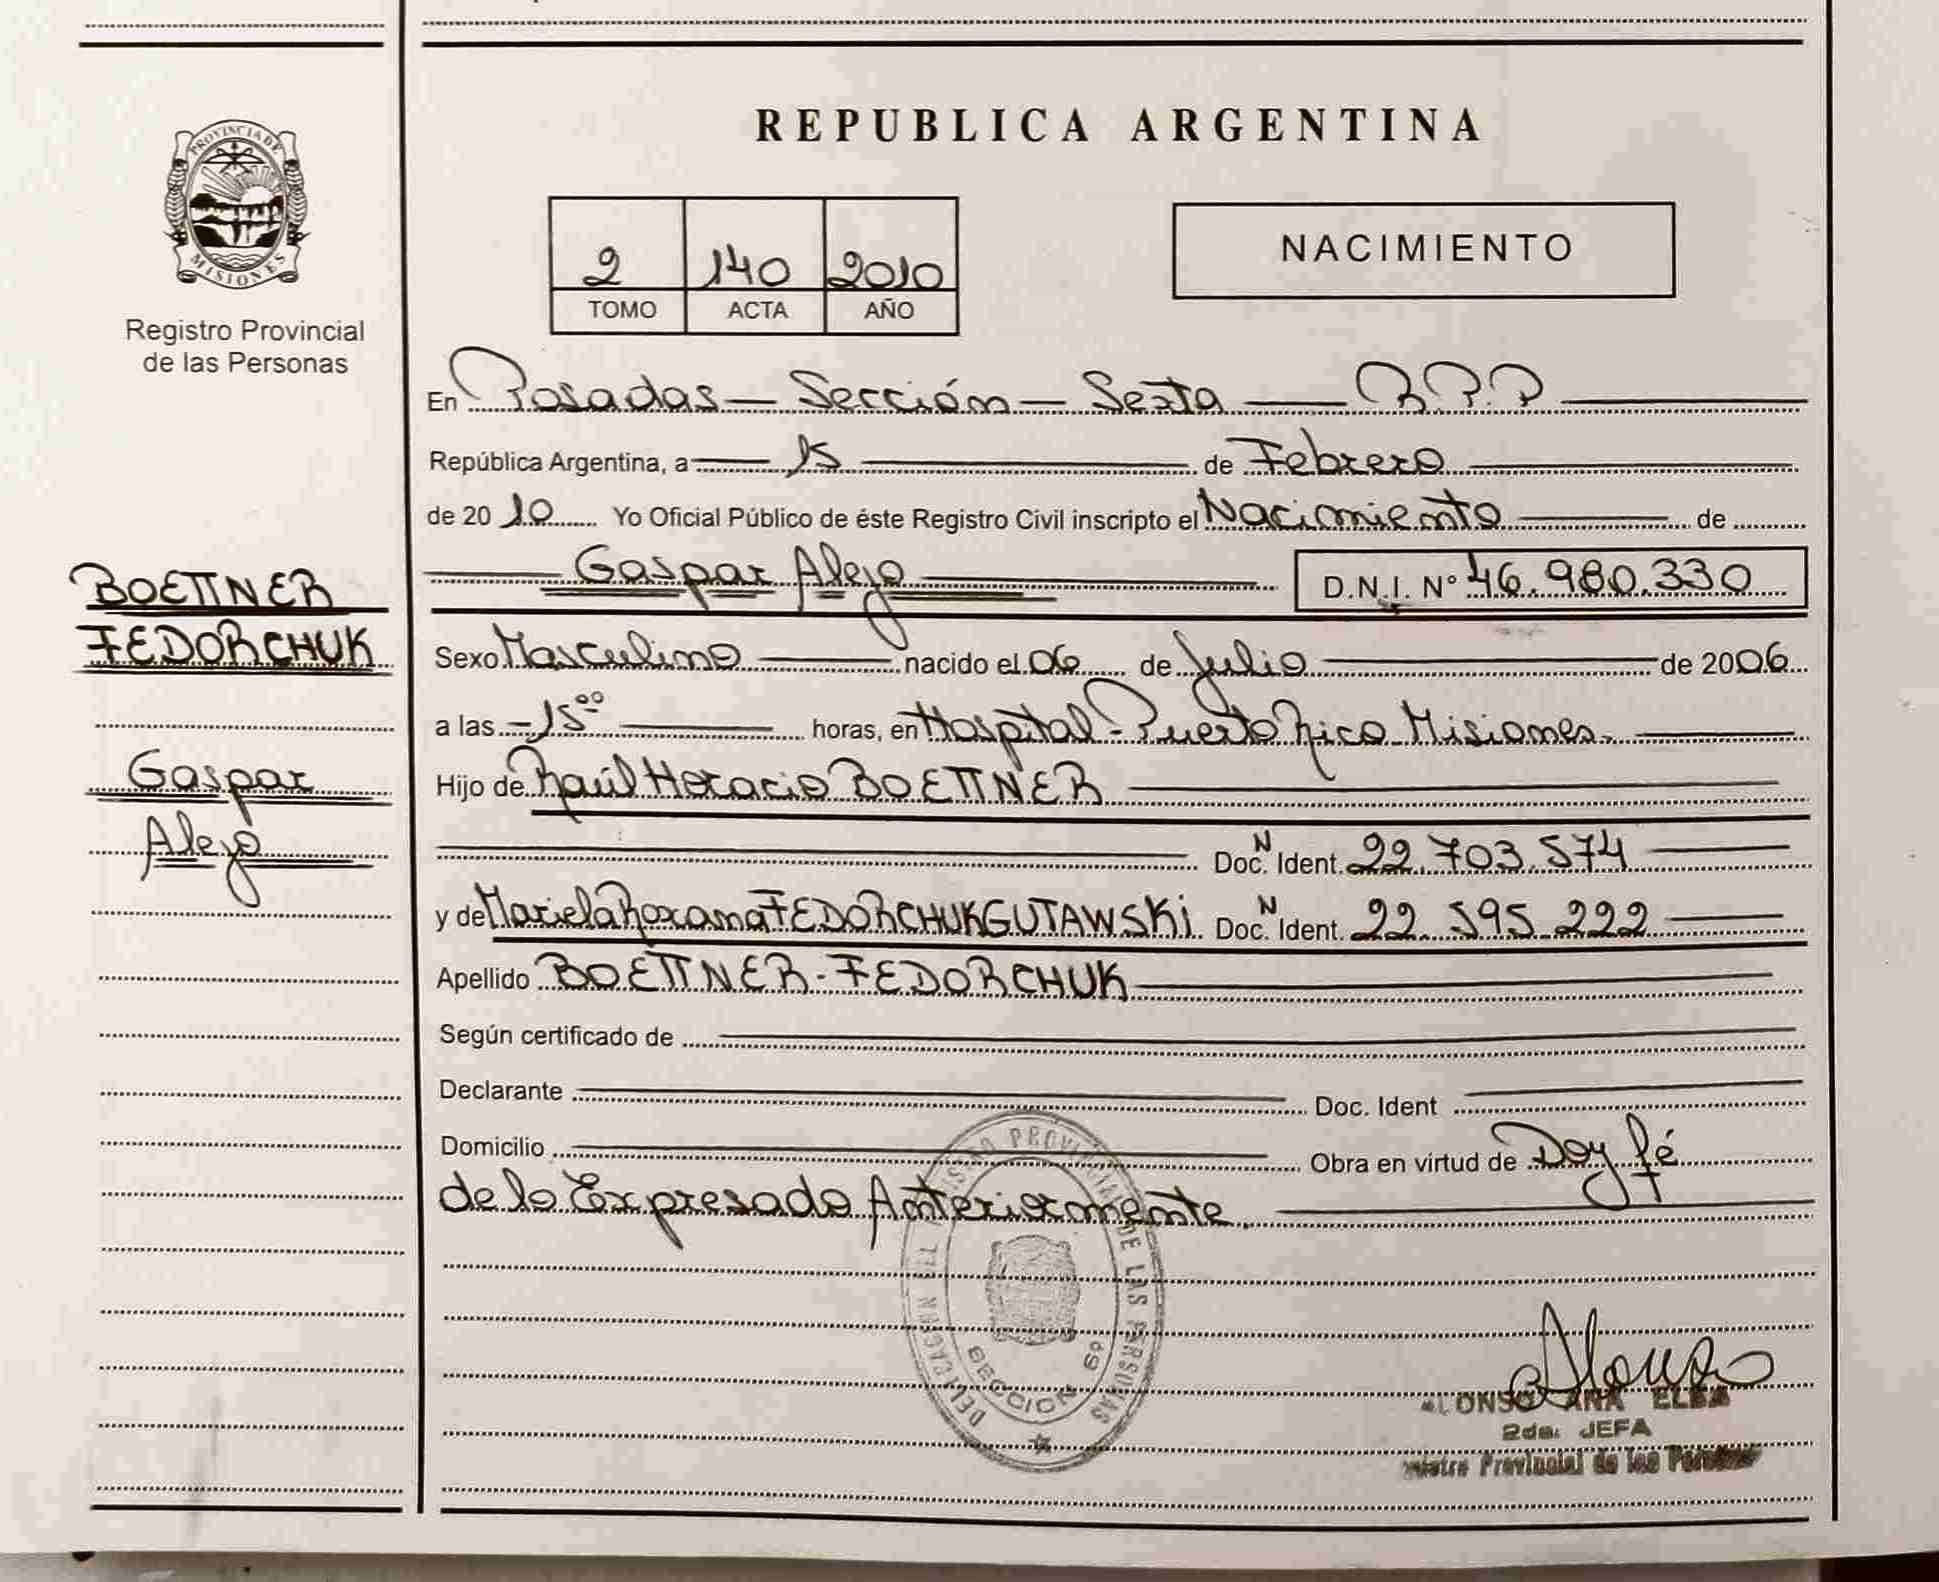 PROVINCIA DE
MISIONES
Registro Provincial
de las Personas
BOETTNER
FEDORCHUK
Gaspar
Alejo
REPUBLICA ARGENTINA
2 140 2010
TOMO ACTA AÑO
NACIMIENTO
En Posadas - Sección - Sexta - R.P.P
República Argentina, a 15 de Febrero
de 2010 Yo Oficial Público de éste Registro Civil inscripto el Nacimiento de
Gaspar Alejo D.N.I. Nº 46.980.330
Sexo Masculino nacido el 06 de Julio de 2006
a las 15⁰⁰ horas, en Hospital - Puerto Rico Misiones.
Hijo de Raúl Horacio BOETTNER
Doc. N Ident. 22.703.574
y de Mariela Roxana FEDORCHUK GUTAWSKi Doc. N Ident. 22.595.222
Apellido BOETTNER - FEDORCHUK
Según certificado de
Declarante Doc. Ident
Domicilio Obra en virtud de Doy fé
de lo Expresado Anteriormente.
PROVINCIAL DE LAS PERSONAS
SECCION 6º
Alonso
ALONSO ANA ELBA
2da. JEFA
Provincial de las